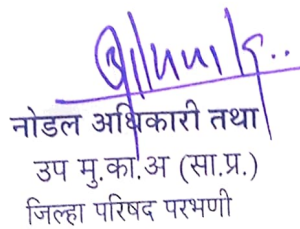 नोडल अधिकारी तथा
उप मु.का.अ (सा.प्र.)
जिल्हा परिषद परभणी